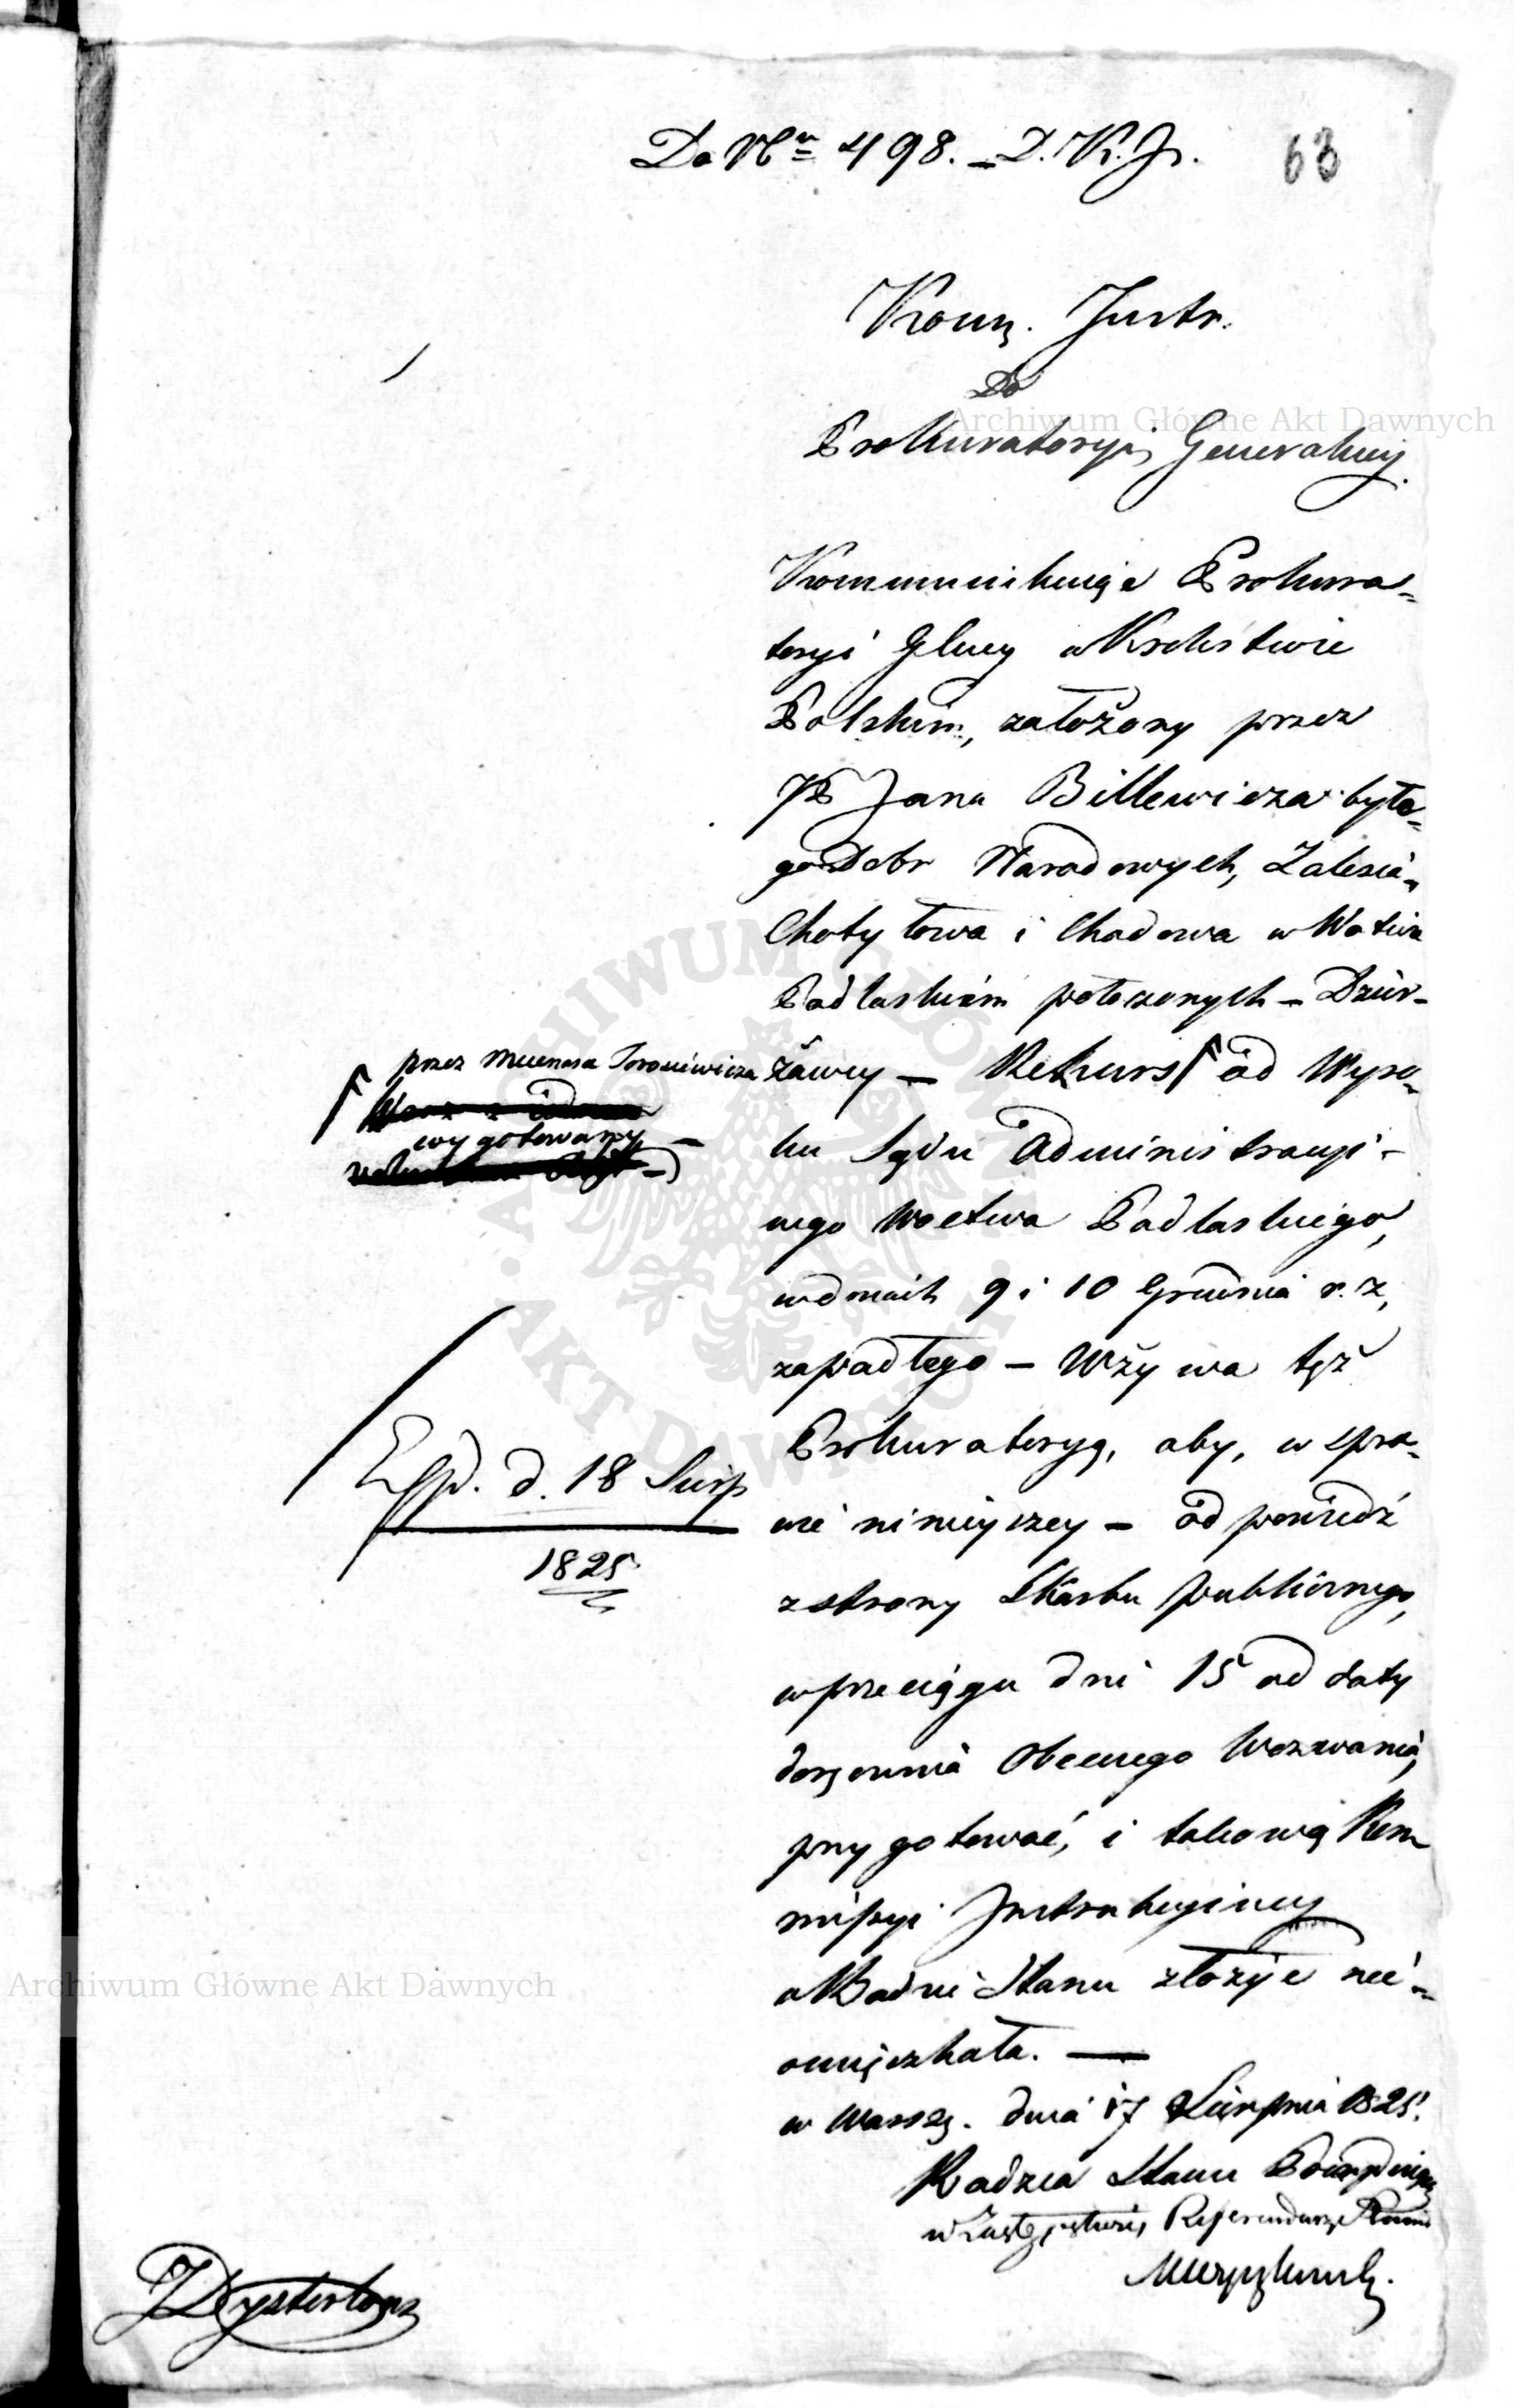 Do Nru 498. – D. K. J.
63
Komm. Instr.
Do
Prokuratoryi Generalney.
Kommunikuiąc Prokura=
toryi Glney w Krolestwie
Polskim, założony przez
JP Jana Billewicza byłe=
go Dobr Narodowych, Zalesia,
Chotyłowa i Chodowa w Wotwie
Podlaskiem położonych – Dzier-
żawcy – Rekurs od Wyro-
ku Sądu Administracyi-
nego Woctwa Podlaskiego,
w dniach 9 i 10 Grudnia r. z.
zapadłego – Wzywa tęż
Prokuratoryą, aby, w spra-
wie ninieyszey – odpowiedź
z strony Skarbu publicznego,
w przeciągu dni 15 od daty
doręczenia Obecnego Wezwania,
przygotować, i takową Kom
missyi Instrukcyiney
w Radzie Stanu złożyć nie-
omięszkała. —
w Warsz. dnia 17 Sierpnia 1825.
Radzca Stanu Prezyduiący
w Zastępstwie, Referendarz Stanu
przez Mecenasa
wygotowany –
Exp. d. 18 Sierp
1825
Archiwum Główne Akt Dawnych
Archiwum Główne Akt Dawnych
ARCHIWUM GŁÓWNE · AKT DAWNYCH ·